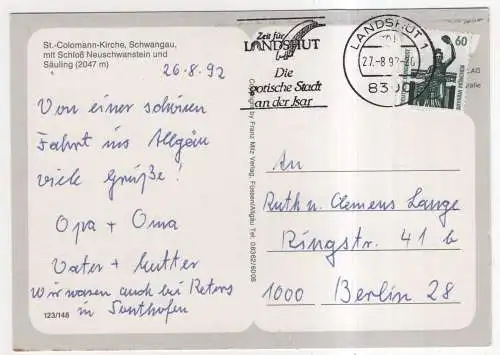 St.-Colomann-Kirche, Schwangau,
mit Schloß Neuschwanstein und
Säuling (2047 m)
26-8.92
Von einer schönen
Fahrt ins Allgäu
viele Grüße!
Opa + Oma
Vater + Mutter
Wir waren auch bei Peters
in Sonthofen
123/148
Copyright by Franz Milz Verlag, Füssen/Allgäu Tel. 08362/6008
Zeit für
LANDSHUT
Die
gotische Stadt
an der Isar
LANDSHUT 1
27.-8.92
8300
60
An
Ruth u. Clemens Lange
Ringstr. 41 b
1000 Berlin 28